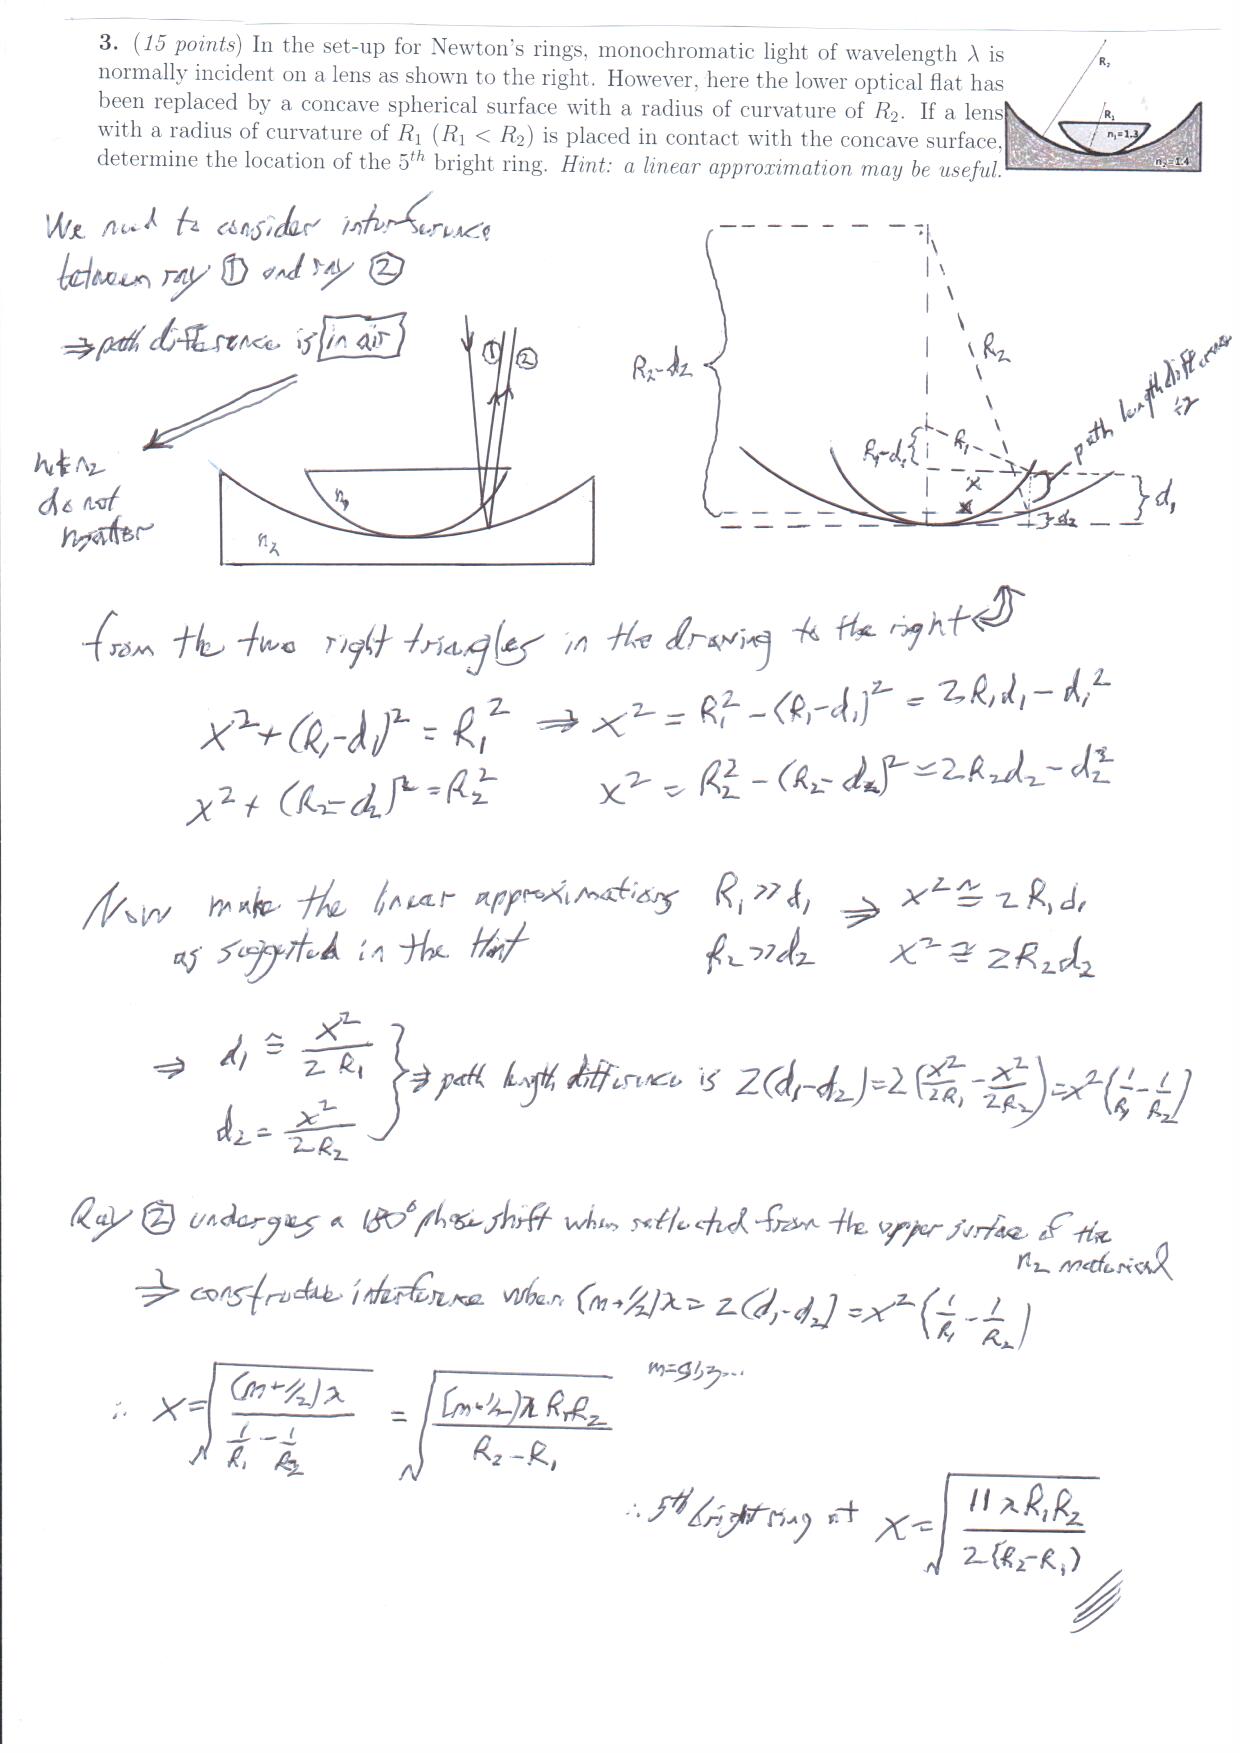 3. (15 points) In the set-up for Newton's rings, monochromatic light of wavelength λ is
normally incident on a lens as shown to the right. However, here the lower optical flat has
been replaced by a concave spherical surface with a radius of curvature of R₂. If a lens
with a radius of curvature of R₁ (R₁ < R₂) is placed in contact with the concave surface,
determine the location of the 5th bright ring. Hint: a linear approximation may be useful.
R₂
R₁
n₁=1.3
n₂=1.4
We need to consider interference
between ray ① and ray ②
⇒ path difference is in air
n₁ & n₂
do not
matter
① ②
n₁
n₂
R₂-d₂
R₂
R₁-d₁
R₁
x
x
path length difference
÷2
d₁
d₂
from the two right triangles in the drawing to the right
x²+(R₁-d₁)² = R₁² ⇒ x² = R₁² - (R₁-d₁)² = 2R₁d₁ - d₁²
x²+(R₂-d₂)² = R₂² x² = R₂² - (R₂-d₂)² = 2R₂d₂ - d₂²
Now make the linear approximations R₁ >> d₁ ⇒ x² ≅ 2R₁d₁
as suggested in the Hint R₂ >> d₂ x² ≅ 2R₂d₂
⇒ d₁ ≅ x²/2R₁
d₂ = x²/2R₂
} ⇒ path length difference is 2(d₁-d₂) = 2(x²/2R₁ - x²/2R₂) = x²(1/R₁ - 1/R₂)
Ray ② undergoes a 180° phase shift when reflected from the upper surface of the
n₂ material
⇒ constructive interference when (m+1/2)λ = 2(d₁-d₂) = x²(1/R₁ - 1/R₂)
∴ x = √((m+1/2)λ/(1/R₁ - 1/R₂)) = √((m+1/2)λR₁R₂/(R₂-R₁))
∴ 5th bright ring at x = √(11λR₁R₂/2(R₂-R₁))